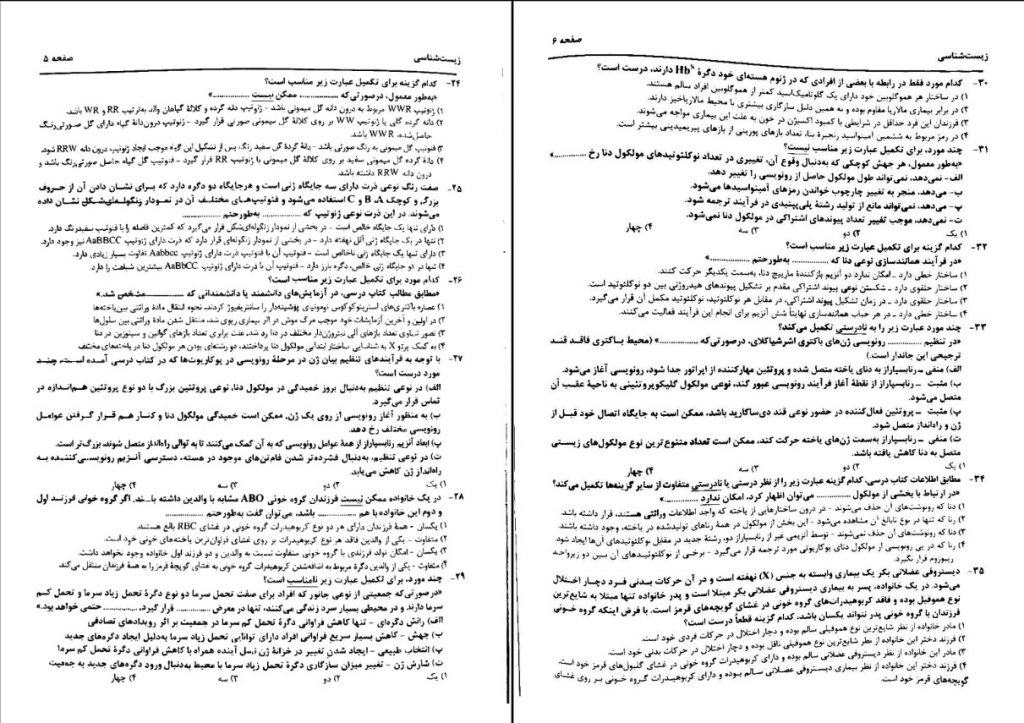 زیست‌شناسی
صفحه ۵
۲۴- کدام گزینه برای تکمیل عبارت زیر مناسب است؟
«به‌طور معمول، درصورتی‌که .............. ممکن نیست ..............»
۱) ژنوتیپ WWR مربوط به درون دانه گل میمونی باشد - ژنوتیپ دانه گرده و کلالۀ گیاهان والد به‌ترتیب RR و WR باشد.
۲) دانه گرده گالی با ژنوتیپ WW بر روی کلالۀ گل میمونی صورتی قرار گیرد - ژنوتیپ درون‌دانۀ گیاه دارای گل صورتی‌رنگ
حاصل‌شده، WWR باشد.
۳) فنوتیپ گل میمونی به رنگ صورتی باشد - دانۀ گردۀ گل سفید رنگ، پس از تشکیل این گیاه موجب ایجاد ژنوتیپ درون دانه RRW شود.
۴) دانه گرده گل میمونی سفید بر روی کلالۀ گل میمونی با ژنوتیپ RR قرار گیرد - فنوتیپ گل گیاه حاصل صورتی‌رنگ باشد و
درون دانه RRW داشته باشد.
۲۵- صفت رنگ نوعی ذرت دارای سه جایگاه ژنی است و هرجایگاه دو دگره دارد که برای نشان دادن آن از حروف
بزرگ و کوچک A، B و C استفاده می‌شود و فنوتیپ‌های مختلف آن در نمودار زنگوله‌ای‌شکل نشان داده
می‌شوند. در این ذرت نوعی ژنوتیپ که .............. به‌طورحتم ..............
۱) دارای تنها یک جایگاه خالص است - در بخشی از نمودار زنگوله‌ای‌شکل قرار می‌گیرد که کمترین فاصله را با فنوتیپ سفیدرنگ دارد.
۲) تنها در یک جایگاه ژنی الل نهفته دارد - در بخشی از نمودار زنگوله‌ای قرار دارد که ذرت دارای ژنوتیپ AaBBCC نیز وجود دارد.
۳) دارای تنها یک جایگاه ژنی ناخالص است - فنوتیپ آن با فنوتیپ ذرت دارای ژنوتیپ Aabbcc تفاوت بسیار زیادی دارد.
۴) تنها در دو جایگاه ژنی خالص، دگره بارز دارد - فنوتیپ آن با ذرت دارای ژنوتیپ AaBbCC بیشترین شباهت را دارد.
۲۶- کدام مورد برای تکمیل عبارت زیر مناسب است؟
«مطابق مطالب کتاب درسی، در آزمایش‌های دانشمند یا دانشمندانی که .............. مشخص شد.»
۱) عصاره باکتری‌های استرپتوکوکوس نومونیای پوشینه‌دار را سانتریفیوژ کردند، نحوه انتقال مادۀ وراثتی بین‌یاخته‌ها
۲) در اولین و آخرین آزمایشات خود موجب مرگ موش در اثر بیماری ریوی شد، منتقل شدن مادۀ وراثتی بین سلول‌ها
۳) تصور تساوی تعداد بازهای آلی نیتروژن‌دار مختلف در دنا رد شد، علت برابری تعداد بازهای گوانین و سیتوزین در دنا
۴) به کمک پرتو X به شناسایی ساختار ابتدایی مولکول دنا پرداختند، دو رشته‌ای بودن هر مولکول دنا در یاخته‌های مختلف
۲۷- با توجه به فرآیندهای تنظیم بیان ژن در مرحلۀ رونویسی در یوکاریوت‌ها که در کتاب درسی آمده است، چند
مورد درست است؟
الف) در نوعی تنظیم به‌دنبال بروز خمیدگی در مولکول دنا، نوعی پروتئین بزرگ با دو نوع پروتئین هم‌اندازه در
تماس قرار می‌گیرد.
ب) به منظور آغاز رونویسی از روی یک ژن، ممکن است خمیدگی مولکول دنا و کنار هم قرار گرفتن عوامل
رونویسی مختلف رخ دهد.
پ) ابعاد آنزیم رنابسپاراز از همۀ عوامل رونویسی که به آن کمک می‌کنند تا به توالی راه‌انداز متصل شوند، بزرگ‌تر است.
ت) در نوعی تنظیم، به‌دنبال فشرده‌تر شدن فام‌تن‌های موجود در هسته، دسترسی آنزیم رونویسی‌کننده به
راه‌انداز ژن کاهش می‌یابد.
۱) یک ۲) دو ۳) سه ۴) چهار
۲۸- در یک خانواده ممکن نیست فرزندان گروه خونی ABO مشابه با والدین داشته باشند. اگر گروه خونی فرزند اول
و دوم این خانواده با هم .............. باشد، می‌توان گفت به‌طورحتم ..............
۱) یکسان - همۀ فرزندان دارای هر دو نوع کربوهیدرات گروه خونی در غشای RBC بالغ هستند.
۲) متفاوت - یکی از والدین فاقد هر نوع کربوهیدرات گروه خونی بر روی غشای فراوان‌ترین یاخته‌های خونی خود است.
۳) یکسان - امکان تولد فرزندی با گروه خونی متفاوت نسبت به والدین و دو فرزند اول خانواده وجود نخواهد داشت.
۴) متفاوت - یکی از والدین دگرۀ مربوط به اضافه‌شدن کربوهیدرات گروه خونی به غشای گویچۀ قرمز را به همۀ فرزندان منتقل می‌کند.
۲۹- چند مورد، برای تکمیل عبارت زیر نامناسب است؟
«درصورتی‌که جمعیتی از نوعی جانور که افراد برای صفت تحمل سرما دو نوع دگرۀ تحمل زیاد سرما و تحمل کم
سرما دارند و در محیطی بسیار سرد زندگی می‌کنند، تنها در معرض .............. قرار گیرد، .............. حتمی خواهد بود.»
الف) رانش دگره‌ای - تنها کاهش فراوانی دگرۀ تحمل کم سرما در جمعیت بر اثر رویدادهای تصادفی
ب) جهش - کاهش بسیار سریع فراوانی افراد دارای توانایی تحمل زیاد سرما به‌دلیل ایجاد دگره‌های جدید
پ) انتخاب طبیعی - ایجاد شدن تغییر در خزانۀ ژن نسل آینده همراه با کاهش فراوانی دگرۀ تحمل کم سرما
ت) شارش ژن - تغییر میزان سازگاری دگرۀ تحمل زیاد سرما با محیط به‌دنبال ورود دگره‌های جدید به جمعیت
۱) یک ۲) دو ۳) سه ۴) چهار
زیست‌شناسی
صفحه ۶
۳۰- کدام مورد فقط در رابطه با بعضی از افرادی که در ژنوم هسته‌ای خود دگرۀ Hbˢ دارند، درست است؟
۱) در ساختار هر هموگلوبین خود دارای یک گلوتامیک‌اسید کمتر از هموگلوبین افراد سالم هستند.
۲) در برابر بیماری مالاریا مقاوم بوده و به همین دلیل سازگاری بیشتری با محیط مالاریاخیز دارند.
۳) فرزندان این فرد حداقل در شرایطی با کمبود اکسیژن در خون به علت این بیماری مواجه می‌شوند.
۴) در رمز مربوط به ششمین آمینواسید زنجیرۀ بتا، تعداد بازهای پورینی از بازهای پیریمیدینی بیشتر است.
۳۱- چند مورد، برای تکمیل عبارت زیر مناسب نیست؟
«به‌طور معمول، هر جهش کوچکی که به‌دنبال وقوع آن، تغییری در تعداد نوکلئوتیدهای مولکول دنا رخ ..............»
الف- نمی‌دهد، نمی‌تواند طول مولکول حاصل از رونویسی را تغییر دهد.
ب- می‌دهد، منجر به تغییر چارچوب خواندن رمزهای آمینواسیدها می‌شود.
پ- می‌دهد، نمی‌تواند مانع از تولید رشتۀ پلی‌پپتیدی در فرآیند ترجمه شود.
ت- نمی‌دهد، موجب تغییر تعداد پیوندهای اشتراکی در مولکول دنا نمی‌شود.
۱) یک ۲) دو ۳) سه ۴) چهار
۳۲- کدام گزینه برای تکمیل عبارت زیر مناسب است؟
«در فرآیند همانندسازی نوعی دنا که .............. به‌طورحتم ..............»
۱) ساختار خطی دارد - امکان ندارد دو آنزیم بازکنندۀ مارپیچ دنا، به‌سمت یکدیگر حرکت کنند.
۲) ساختار حلقوی دارد - شکستن نوعی پیوند اشتراکی مقدم بر تشکیل پیوندهای هیدروژنی بین دو نوکلئوتید است.
۳) ساختار حلقوی دارد - در زمان تشکیل پیوند اشتراکی، در مقابل هر نوکلئوتید، نوکلئوتید مکمل آن قرار می‌گیرد.
۴) ساختار خطی دارد - در هر حباب همانندسازی نهایتاً شش آنزیم برای انجام این فرآیند فعالیت می‌کنند.
۳۳- چند مورد عبارت زیر را به نادرستی تکمیل می‌کند؟
«در تنظیم .............. رونویسی ژن‌های باکتری اشرشیاکلای، درصورتی‌که ..............» (محیط باکتری فاقد قند
ترجیحی این جاندار است.)
الف) منفی - رنابسپاراز به دنای یاخته متصل شده و پروتئین مهارکننده از اپراتور جدا شود، رونویسی آغاز می‌شود.
ب) مثبت - رنابسپاراز از نقطۀ آغاز فرآیند رونویسی عبور کند، نوعی مولکول گلیکوپروتئینی به ناحیۀ عقب آن
متصل می‌شود.
پ) مثبت - پروتئین فعال‌کننده در حضور نوعی قند دی‌ساکارید باشد، ممکن است به جایگاه اتصال خود قبل از
ژن و راه‌انداز متصل شود.
ت) منفی - رنابسپاراز به‌سمت ژن‌های یاخته حرکت کند، ممکن است تعداد متنوع‌ترین نوع مولکول‌های زیستی
متصل به دنا کاهش یافته باشد.
۱) یک ۲) دو ۳) سه ۴) چهار
۳۴- مطابق اطلاعات کتاب درسی، کدام گزینه عبارت زیر را از نظر درستی یا نادرستی متفاوت از سایر گزینه‌ها تکمیل می‌کند؟
«در ارتباط با بخشی از مولکول .............. می‌توان اظهار کرد، امکان ندارد ..............»
۱) دنا که رونوشت‌های آن حذف می‌شوند - در درون ساختارهایی از یاخته که واجد اطلاعات وراثتی هستند، قرار داشته باشد.
۲) رنا که تنها در نوع نابالغ آن مشاهده می‌شود - این بخش از مولکول در همۀ رناهای تولیدشده در یاخته، وجود داشته باشند.
۳) دنا که رونوشت‌های آن حذف نمی‌شوند - توسط آنزیمی غیر از رنابسپاراز دو، رشتۀ جدید در مقابل نوکلئوتیدهای آن‌ها ایجاد شود.
۴) رنا که در پی رونویسی از مولکول دنای یوکاریوتی مورد ترجمه قرار می‌گیرد - برخی از نوکلئوتیدهای آن بین دو زیرواحد
ریبوزوم قرار نگیرد.
۳۵- دیستروفی عضلانی بکر یک بیماری وابسته به جنس (X) نهفته است و در آن حرکات بدنی فرد دچار اختلال
می‌شود. در یک خانواده، پسر به بیماری دیستروفی عضلانی بکر مبتلا است و پدر خانواده تنها مبتلا به شایع‌ترین
نوع هموفیل بوده و فاقد کربوهیدرات‌های گروه خونی در غشای گویچه‌های قرمز است. با فرض اینکه گروه خونی
فرزندان با گروه خونی پدر نتواند یکسان باشد، کدام گزینه قطعاً درست است؟
۱) مادر خانواده از نظر شایع‌ترین نوع هموفیلی سالم بوده و دچار اختلال در حرکات فردی خود است.
۲) فرزند دختر این خانواده از نظر شایع‌ترین نوع هموفیلی ناقل بوده و دچار اختلال در حرکات بدنی خود است.
۳) مادر این خانواده از نظر دیستروفی عضلانی سالم بوده و دارای کربوهیدرات گروه خونی در غشای گلبول‌های قرمز خود است.
۴) فرزند دختر این خانواده از نظر بیماری دیستروفی عضلانی سالم بوده و دارای کربوهیدرات گروه خونی بر روی غشای
گویچه‌های قرمز خود است.